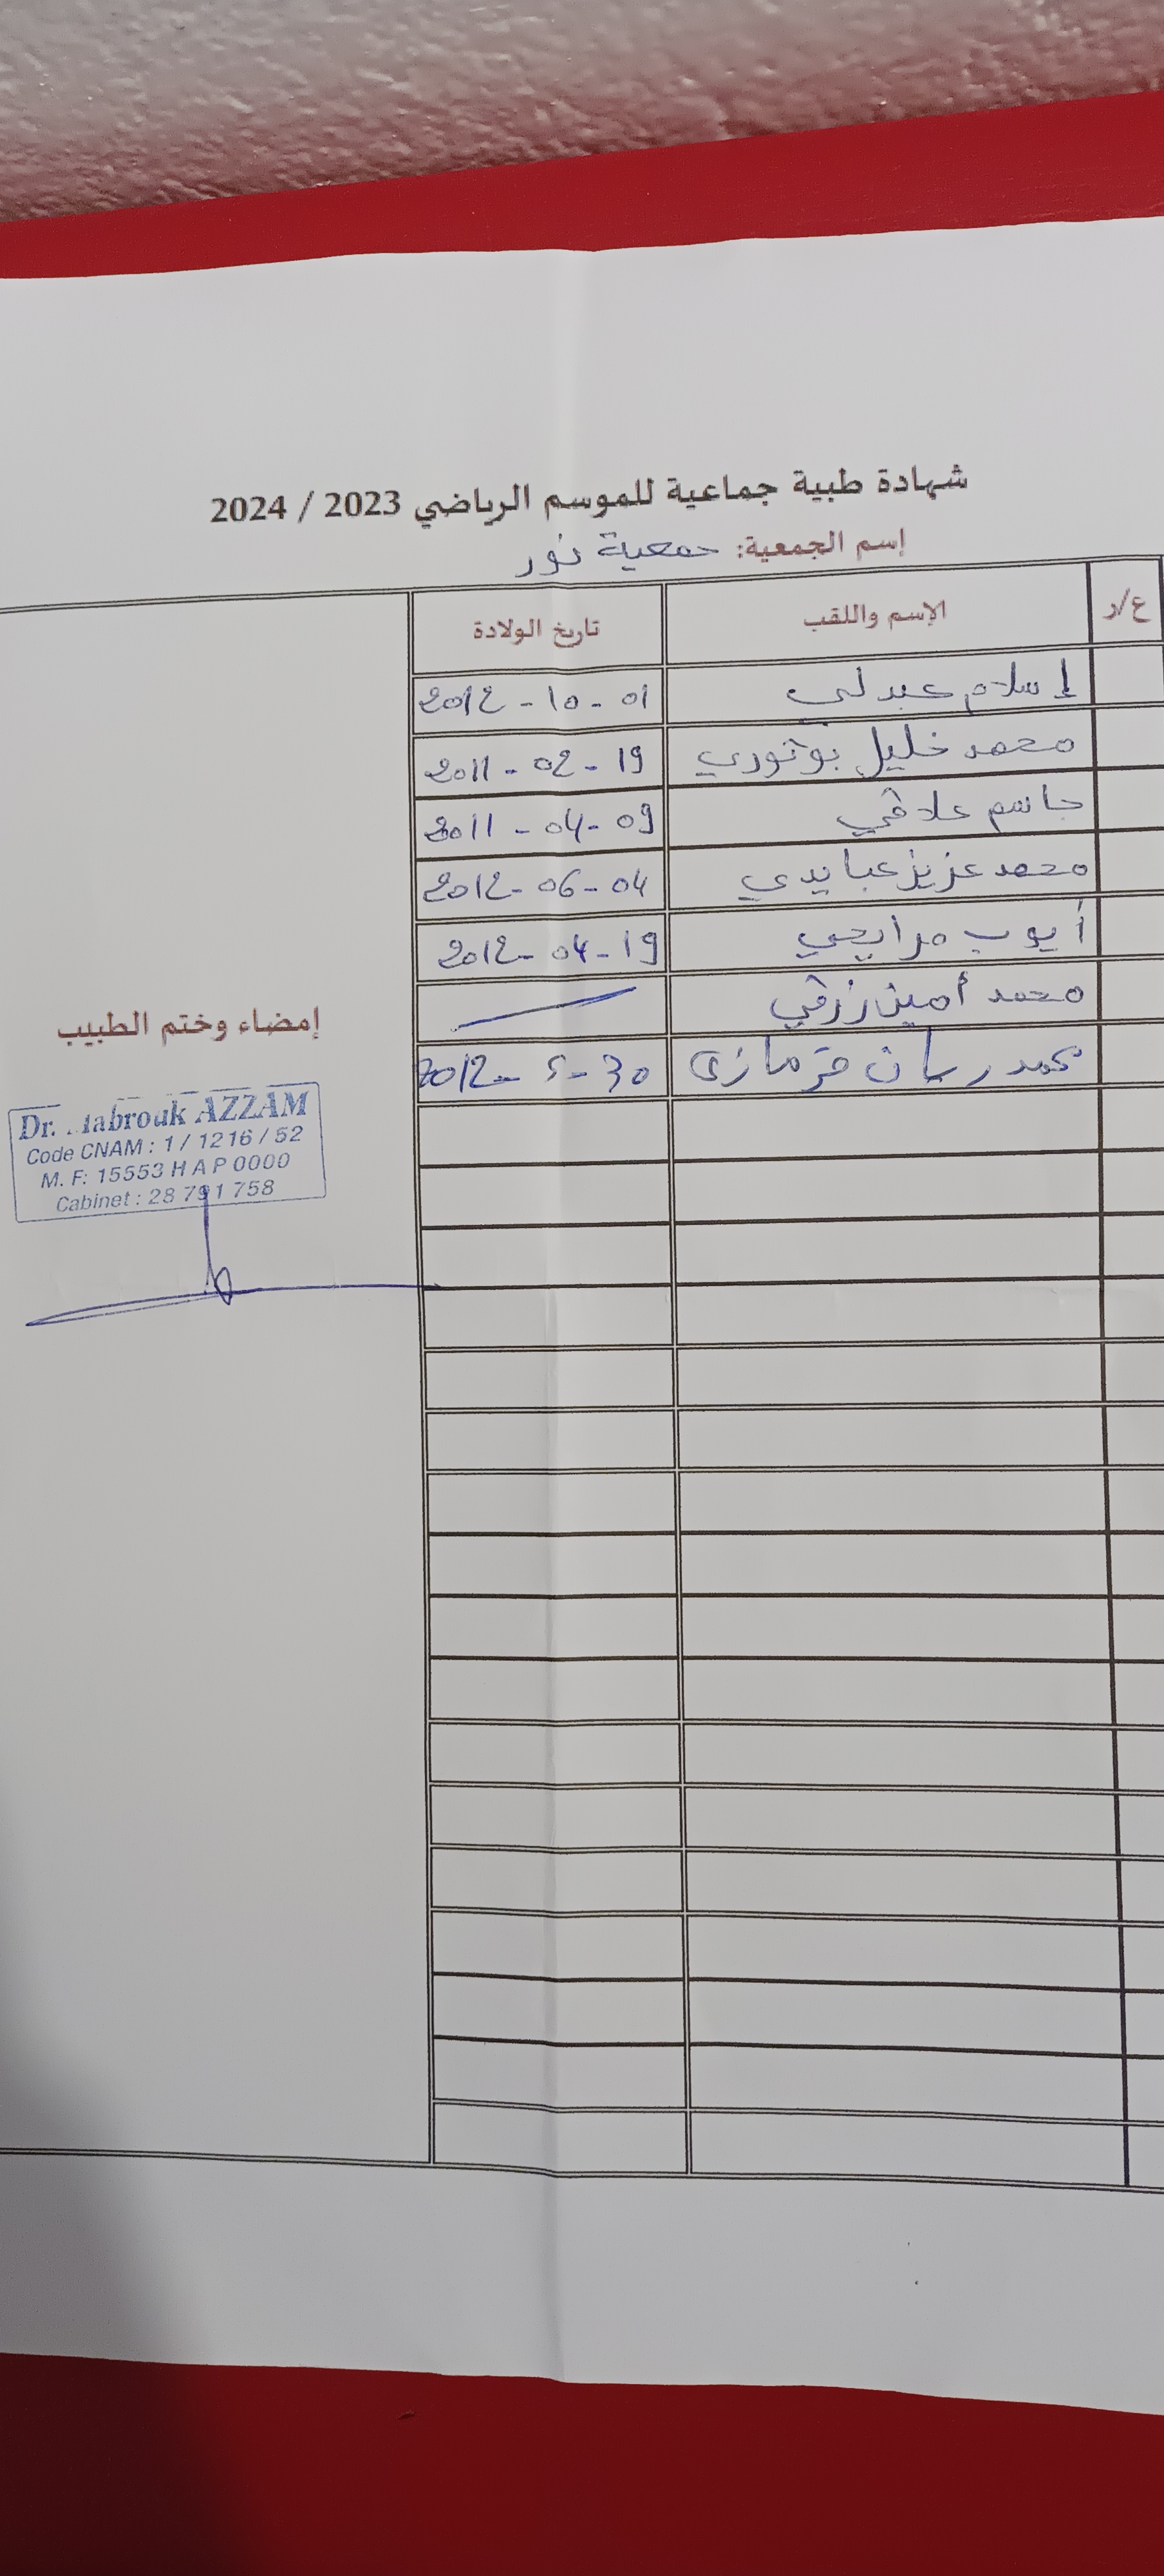 شهادة طبية جماعية للموسم الرياضي 2023 / 2024
إسم الجمعية: جمعية نور
ع/ر الإسم واللقب تاريخ الولادة
إسلام عبدلي 2012 - 10 - 01
محمد خليل بوثوري 2011 - 02 - 19
جاسم علاقي 2011 - 04 - 09
محمد عزيز عبايدي 2012 - 06 - 04
أيوب مرايحي 2012 - 04 - 19
محمد أمين زرقي
محمد ريان قرمازي 2012 - 5 - 30
إمضاء وختم الطبيب
Dr. Mabrouk AZZAM
Code CNAM : 1 / 1216 / 52
M. F: 15553 H A P 0000
Cabinet : 28 791 758